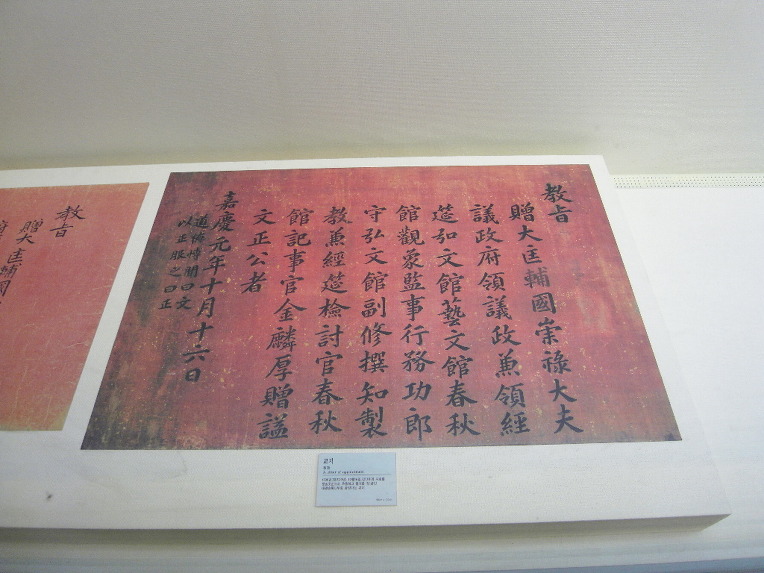 教旨
贈大匡輔國崇祿大夫
議政府領議政兼領經
筵弘文館藝文館春秋
館觀象監事行務功郎
守弘文館副修撰知製
教兼經筵檢討官春秋
館記事官金麟厚贈謚
文正公者
嘉慶元年十月十六日
道德博聞曰文
以正服之曰正
教旨
贈大匡輔國
교지